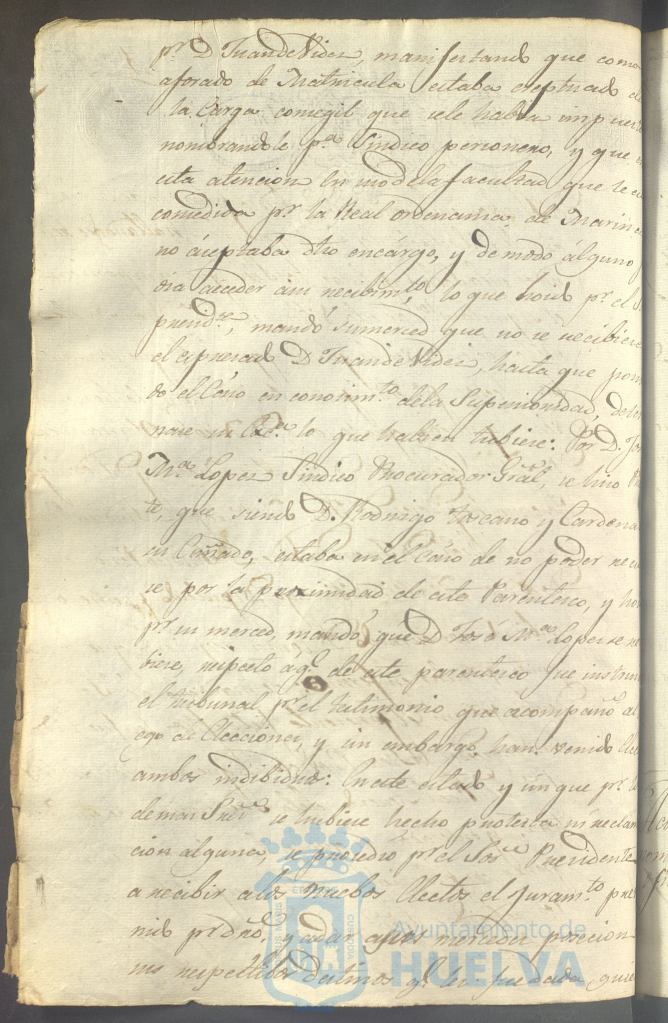 pr. D. Juan de Vides, manifestando que como
aforado de Matricula estaba exeptuado de
la Carga consegil que sele habia impues
nombrandole pa. Sindico personero, y que
esta atencion en uso dela facultad que le
comedida pr. la Real ordenanza de Marin
no aceptaba dho encargo, y de modo alguno
dia acceder asu recibimto, lo que hoido pr. el
presidte, mando sumerced que no se recibiere
el expresado D. Juan de Vides, hasta que pon
do el Caso en conosimto dela Superioridad, dete
nase su Exa. lo que ha bien tubiese: Por D. Jo
Ma. Lopez Sindico Procurador Gral, se hiso
te, que siendo D. Rodrigo Toscano y Cardena
su Cuñado, estaba en el Caso de no poder reci
se por la proximidad de este Parentesco, y ho
pr. su merced, mando, que D. Jose Ma. Lopes se re
biese, respecto á q. de este parentesco fue instru
el tribunal pr. el testimonio que acompaño al
ego de Elecciones, y sin embargo han venido Elec
ambos individuos: En este estado y sin que pr. l
demas Sres se tubiese hecho protexta ni reclam
cion alguna, se procedio pr. el Sor. Presidente
a recibir alos nuebos Electos el Juramto pre
nido pr. dro. y adar asus mercedes posecion
sus respectibos destinos q. les fue dada quie
Ayuntamiento de
HUELVA